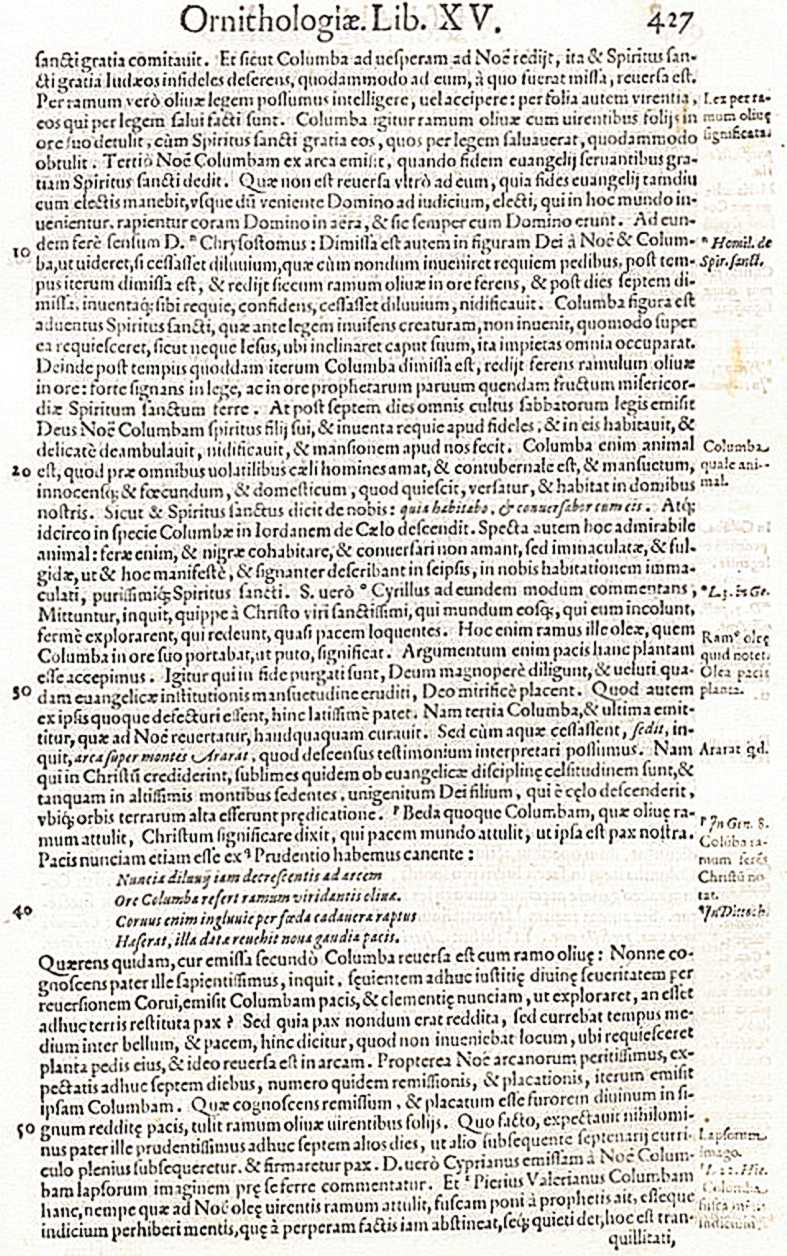 Ornithologiæ. Lib. XV. 427
sancti gratia comitauit. Et sicut Columba ad uesperam ad Noë redijt, ita & Spiritus san-
cti gratia Iudæos infideles deserens, quodammodo ad eum, à quo fuerat missa, reuersa est.
Per ramum verò oliuæ legem possumus intelligere, uel accipere: per folia autem virentia,
Lex per ra-
eos qui per legem salui facti sunt. Columba igitur ramum oliuæ cum uirentibus folijs in
mum oliuę
ore suo detulit, cùm Spiritus sancti gratia eos, quos per legem saluauerat, quodammodo
significata.
obtulit. Tertiò Noë Columbam ex arca emisit, quando fidem euangelij seruantibus gra-
tiam Spiritus sancti dedit. Quæ non est reuersa vltrò ad eum, quia fides euangelij tamdiu
cum electis manebit, vsque dū veniente Domino ad iudicium, electi, qui in hoc mundo in-
uenientur, rapientur coram Domino in aëra, & sic semper cum Domino erunt. Ad eun-
10 dem ferè sensum D. ⁿ Chrysostomus: Dimissa est autem in figuram Dei à Noë & Colum-
ⁿ Homil. de
ba, ut uideret, si cessasset diluuium, quæ cùm nondum inueniret requiem pedibus, post tem-
Spir. sanct.
pus iterum dimissa est, & redijt siccum ramum oliuæ in ore ferens, & post dies septem di-
missa, inuentaq; sibi requie, confidens, cessasset diluuium, nidificauit. Columba figura est
aduentus Spiritus sancti, quæ ante legem inuisens creaturam, non inuenit, quomodo super
ea requiesceret, sicut neque Iesus, ubi inclinaret caput suum, ita impietas omnia occuparat.
Deinde post tempus quoddam iterum Columba dimissa est, redijt ferens ramulum oliuæ
in ore: forte signans in lege, ac in ore prophetarum paruum quendam fructum misericor-
diæ Spiritum sanctum ferre. At post septem dies omnis cultus sabbatorum legis emisit
Deus Noë Columbam spiritus filij sui, & inuenta requie apud fideles, & in eis habitauit, &
delicatè deambulauit, nidificauit, & mansionem apud nos fecit. Columba enim animal
Columba
20 est, quod præ omnibus uolatilibus cæli homines amat, & contubernale est, & mansuetum,
quale ani-
innocensq; & fœcundum, & domesticum, quod quiescit, versatur, & habitat in domibus
mal.
nostris. Sicut & Spiritus sanctus dicit de nobis: quia habitabo, & conuersabor cum eis. Atq;
idcirco in specie Columbæ in Iordanem de Cælo descendit. Specta autem hoc admirabile
animal: feræ enim, & nigræ cohabitare, & conuersari non amant, sed immaculatæ, & ful-
gidæ, ut & hoc manifestè, & signanter describant in seipsis, in nobis habitationem imma-
culati, purissimiq; Spiritus sancti. S. uerò ᵒ Cyrillus ad eundem modum commentans,
ᵒ L. 3. in Ge.
Mittuntur, inquit, quippe à Christo viri sanctissimi, qui mundum eosq;, qui eum incolunt,
fermè explorarent, qui redeunt, quasi pacem loquentes. Hoc enim ramus ille oleæ, quem
Ramꝰ oleę
Columba in ore suo portabat, ut puto, significat. Argumentum enim pacis hanc plantam
quid notet.
esse accepimus. Igitur qui in fide purgati sunt, Deum magnoperè diligunt, & ueluti qua-
Olea pacis
30 dam euangelicæ institutionis mansuetudine eruditi, Deo mirificè placent. Quod autem
planta.
ex ipsis quoque defecturi essent, hinc latissimè patet. Nam tertia Columba, & ultima emit-
titur, quæ ad Noë reuertatur, haudquaquam curauit. Sed cùm aquæ cessassent, sedit, in-
quit, arca super montes Ararat, quod descensus testimonium interpretari possumus. Nam
Ararat qd.
qui in Christū crediderint, sublimes quidem ob euangelicæ disciplinę celsitudinem sunt, &
tanquam in altissimis montibus sedentes, unigenitum Dei filium, qui è cęlo descenderit,
vbiq; orbis terrarum alta efferunt prędicatione. ᵖ Beda quoque Columbam, quæ oliuę ra-
ᵖ In Gen. 8.
mum attulit, Christum significare dixit, qui pacem mundo attulit, ut ipsa est pax nostra.
Colūba ra-
Pacis nunciam etiam esse ex ᑫ Prudentio habemus canente:
mum ferēs
Nuncia diluuij iam decrescentis ad arcem
Christū no
Ore Columba refert ramum viridantis oliua.
tat.
40 Coruus enim ingluuie per fœda cadauera raptus
ᑫ In Dittoch.
Hæserat, illa data reuehit noua gaudia pacis.
Quærens quidam, cur emissa secundò Columba reuersa est cum ramo oliuę: Nonne co-
gnoscens pater ille sapientissimus, inquit, sęuientem adhuc iustitię diuinę seueritatem per
reuersionem Corui, emisit Columbam pacis, & clementię nunciam, ut exploraret, an esset
adhuc terris restituta pax? Sed quia pax nondum erat reddita, sed currebat tempus me-
dium inter bellum, & pacem, hinc dicitur, quod non inueniebat locum, ubi requiesceret
planta pedis eius, & ideo reuersa est in arcam. Propterea Noë arcanorum peritissimus, ex-
pectatis adhuc septem diebus, numero quidem remissionis, & placationis, iterum emisit
ipsam Columbam. Quæ cognoscens remissum, & placatum esse furorem diuinum in si-
50 gnum redditę pacis, tulit ramum oliuæ uirentibus folijs. Quo facto, expectauit nihilomi-
nus pater ille prudentissimus adhuc septem altos dies, ut alio subsequente septenarij curri-
Lapsorum
culo plenius subsequeretur, & firmaretur pax. D. uerò Cyprianus emissam à Noë Colum-
imago.
bam lapsorum imaginem prę se ferre commentatur. Et Pierius Valerianus Columbam
hanc, nempe quæ ad Noë oleę uirentis ramum attulit, fuscam poni à prophetis ait, esseque
indicium perhiberi mentis, quę à perperam factis iam abstineat, seq; quieti det, hoc est tran-
quillitati,